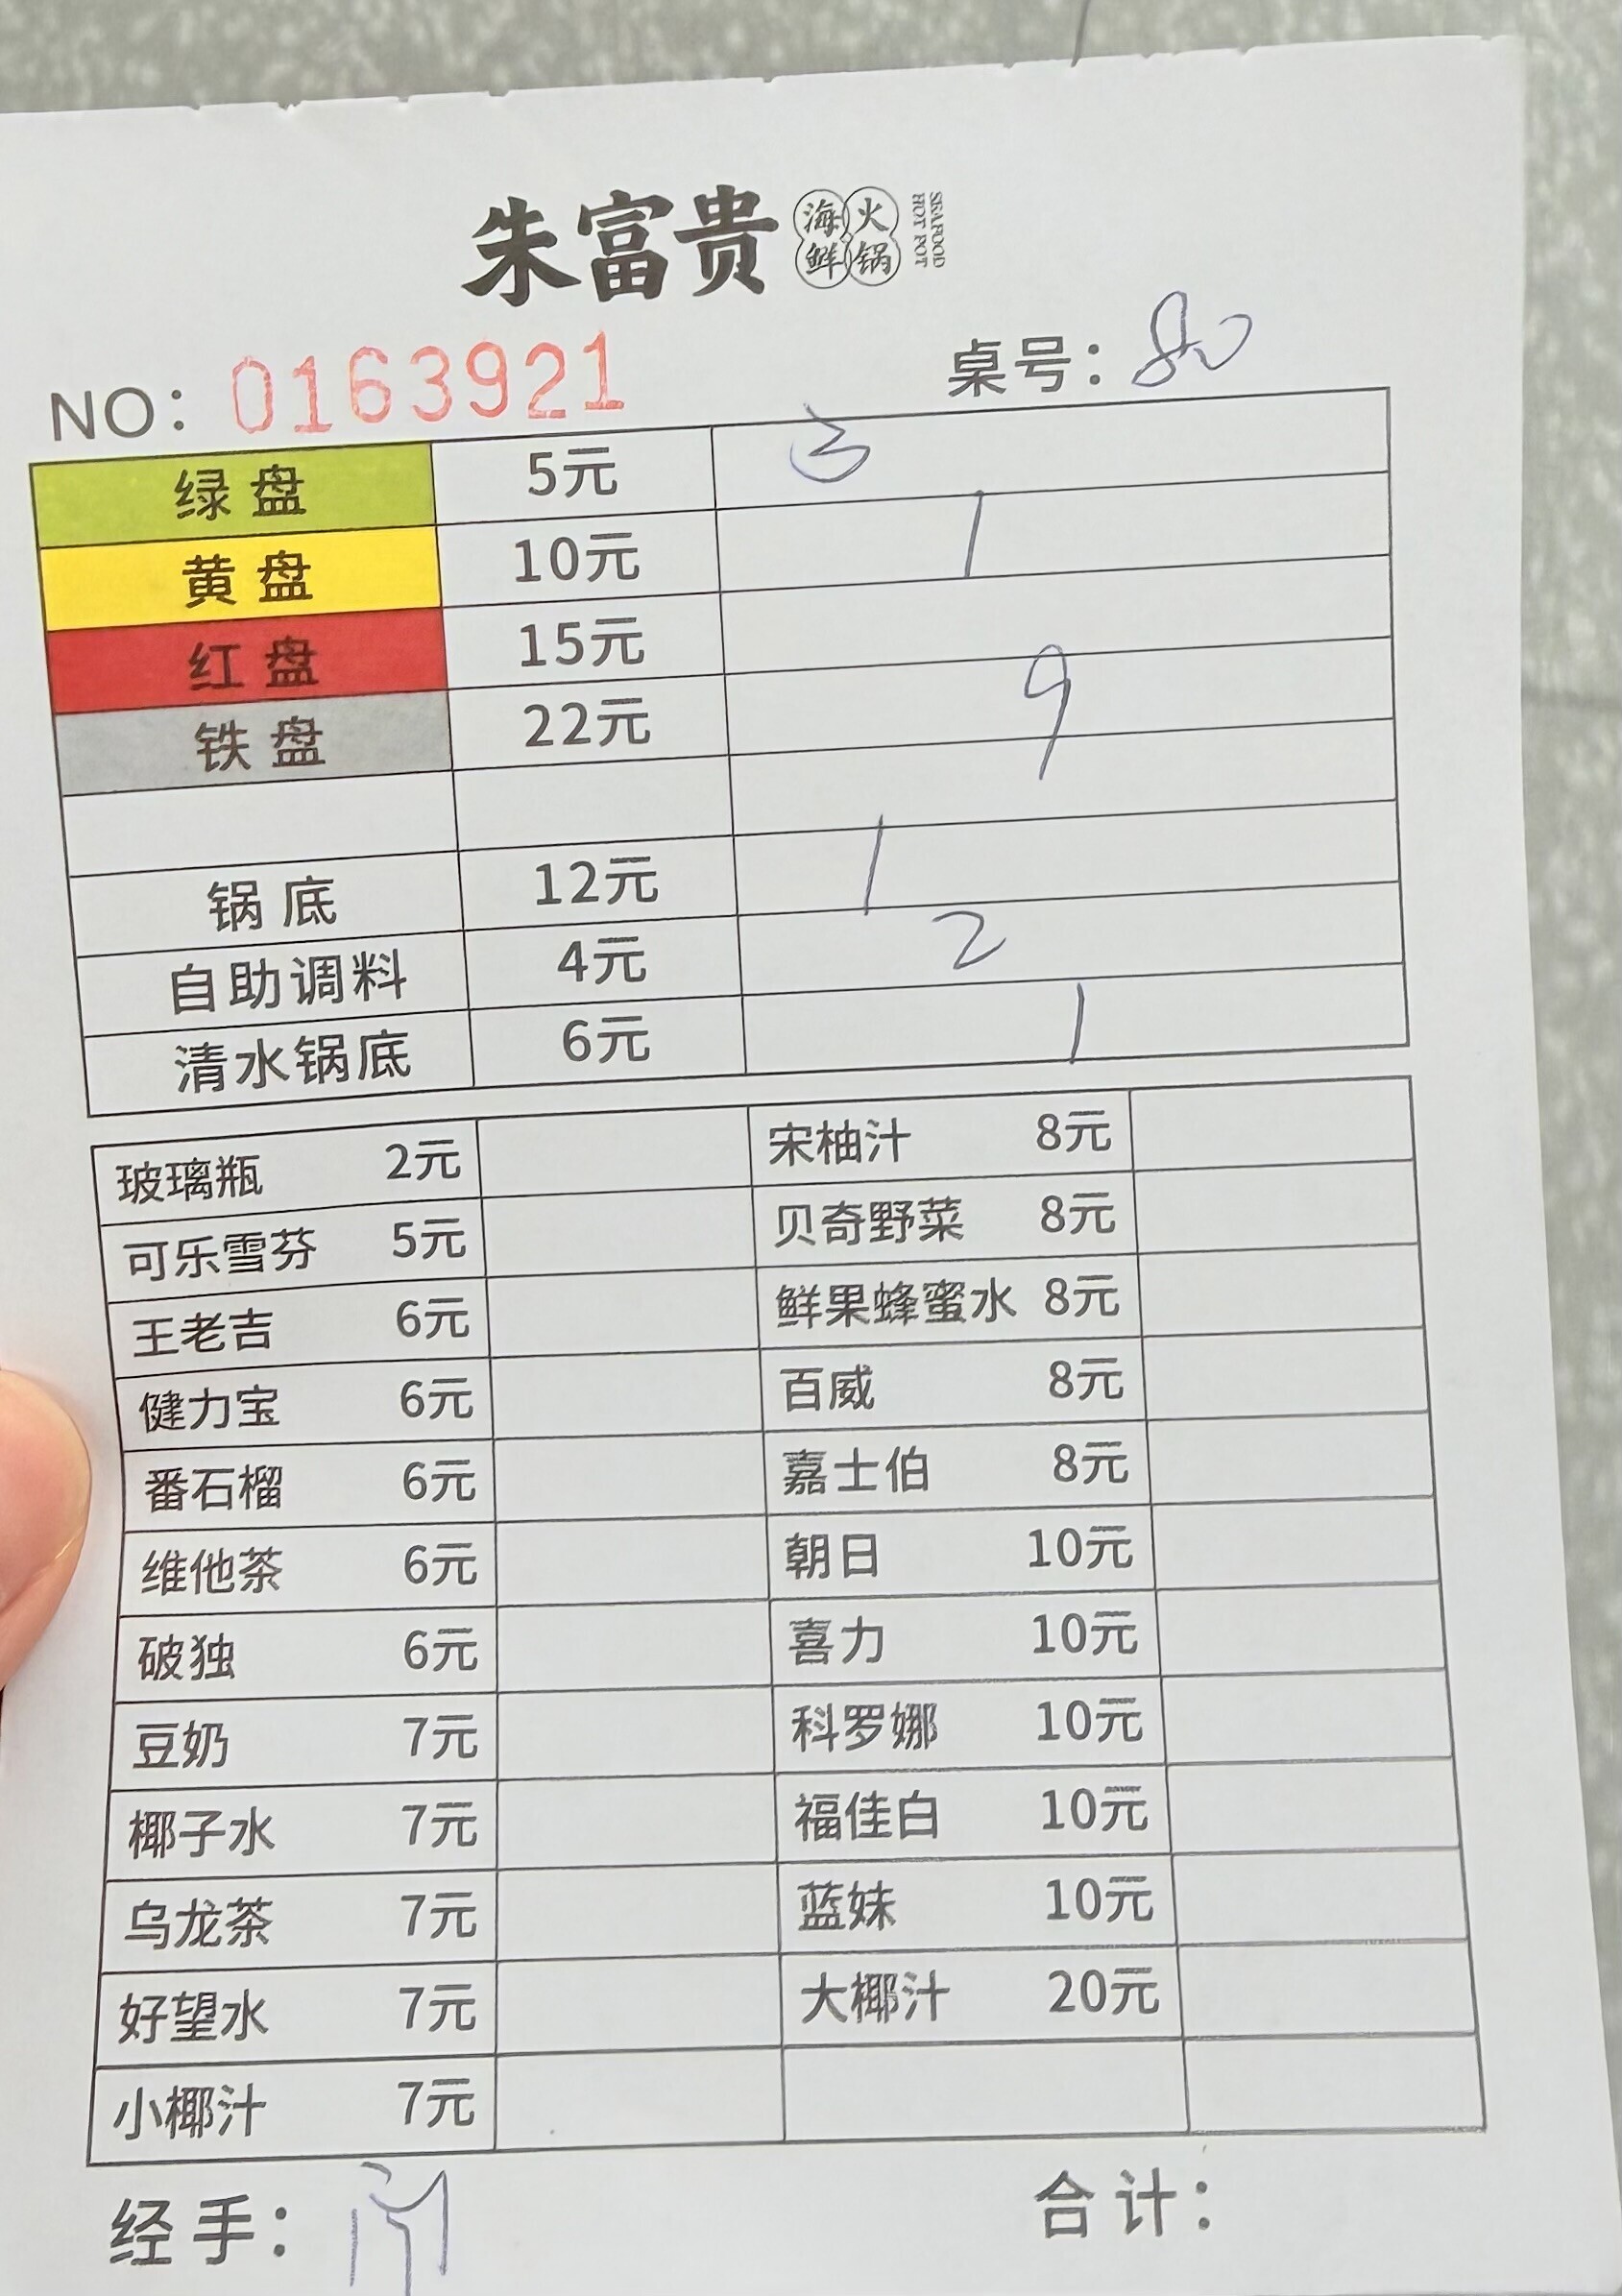 朱富贵 海鲜火锅 SEAFOOD HOT POT
NO: 0163921 桌号: 80
绿盘 5元 3
黄盘 10元 1
红盘 15元
铁盘 22元 9
锅底 12元 1
自助调料 4元 2
清水锅底 6元 1
玻璃瓶 2元 宋柚汁 8元
可乐雪芬 5元 贝奇野菜 8元
王老吉 6元 鲜果蜂蜜水 8元
健力宝 6元 百威 8元
番石榴 6元 嘉士伯 8元
维他茶 6元 朝日 10元
破独 6元 喜力 10元
豆奶 7元 科罗娜 10元
椰子水 7元 福佳白 10元
乌龙茶 7元 蓝妹 10元
好望水 7元 大椰汁 20元
小椰汁 7元
经手: 合计: